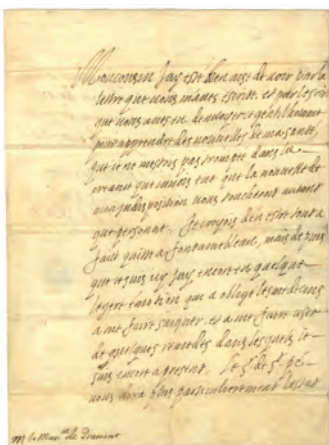 Mon cousin Jay esté bien aise de voir par la
lettre que vous mavez escritte, et par le soin
que vous avez eu de menvoyer ce gentilhomme
pour apprendre des nouvelles de ma santé,
que je ne mestois pas trompé dans la
creance que javois eue que la nouvelle de
mon indisposition vous toucheroit autant
que personne. Je croyois den estre tout a
fait quitte a Fontainebleau, mais depuis
que je suis icy jay encore eu quelque
legere emotion qui a obligé les medecins
a me faire saigner, et a me faire user
de quelques remedes dans lesquels je
suis encore a present. Le Sr de St. pé
vous dira plus particulierement lestat